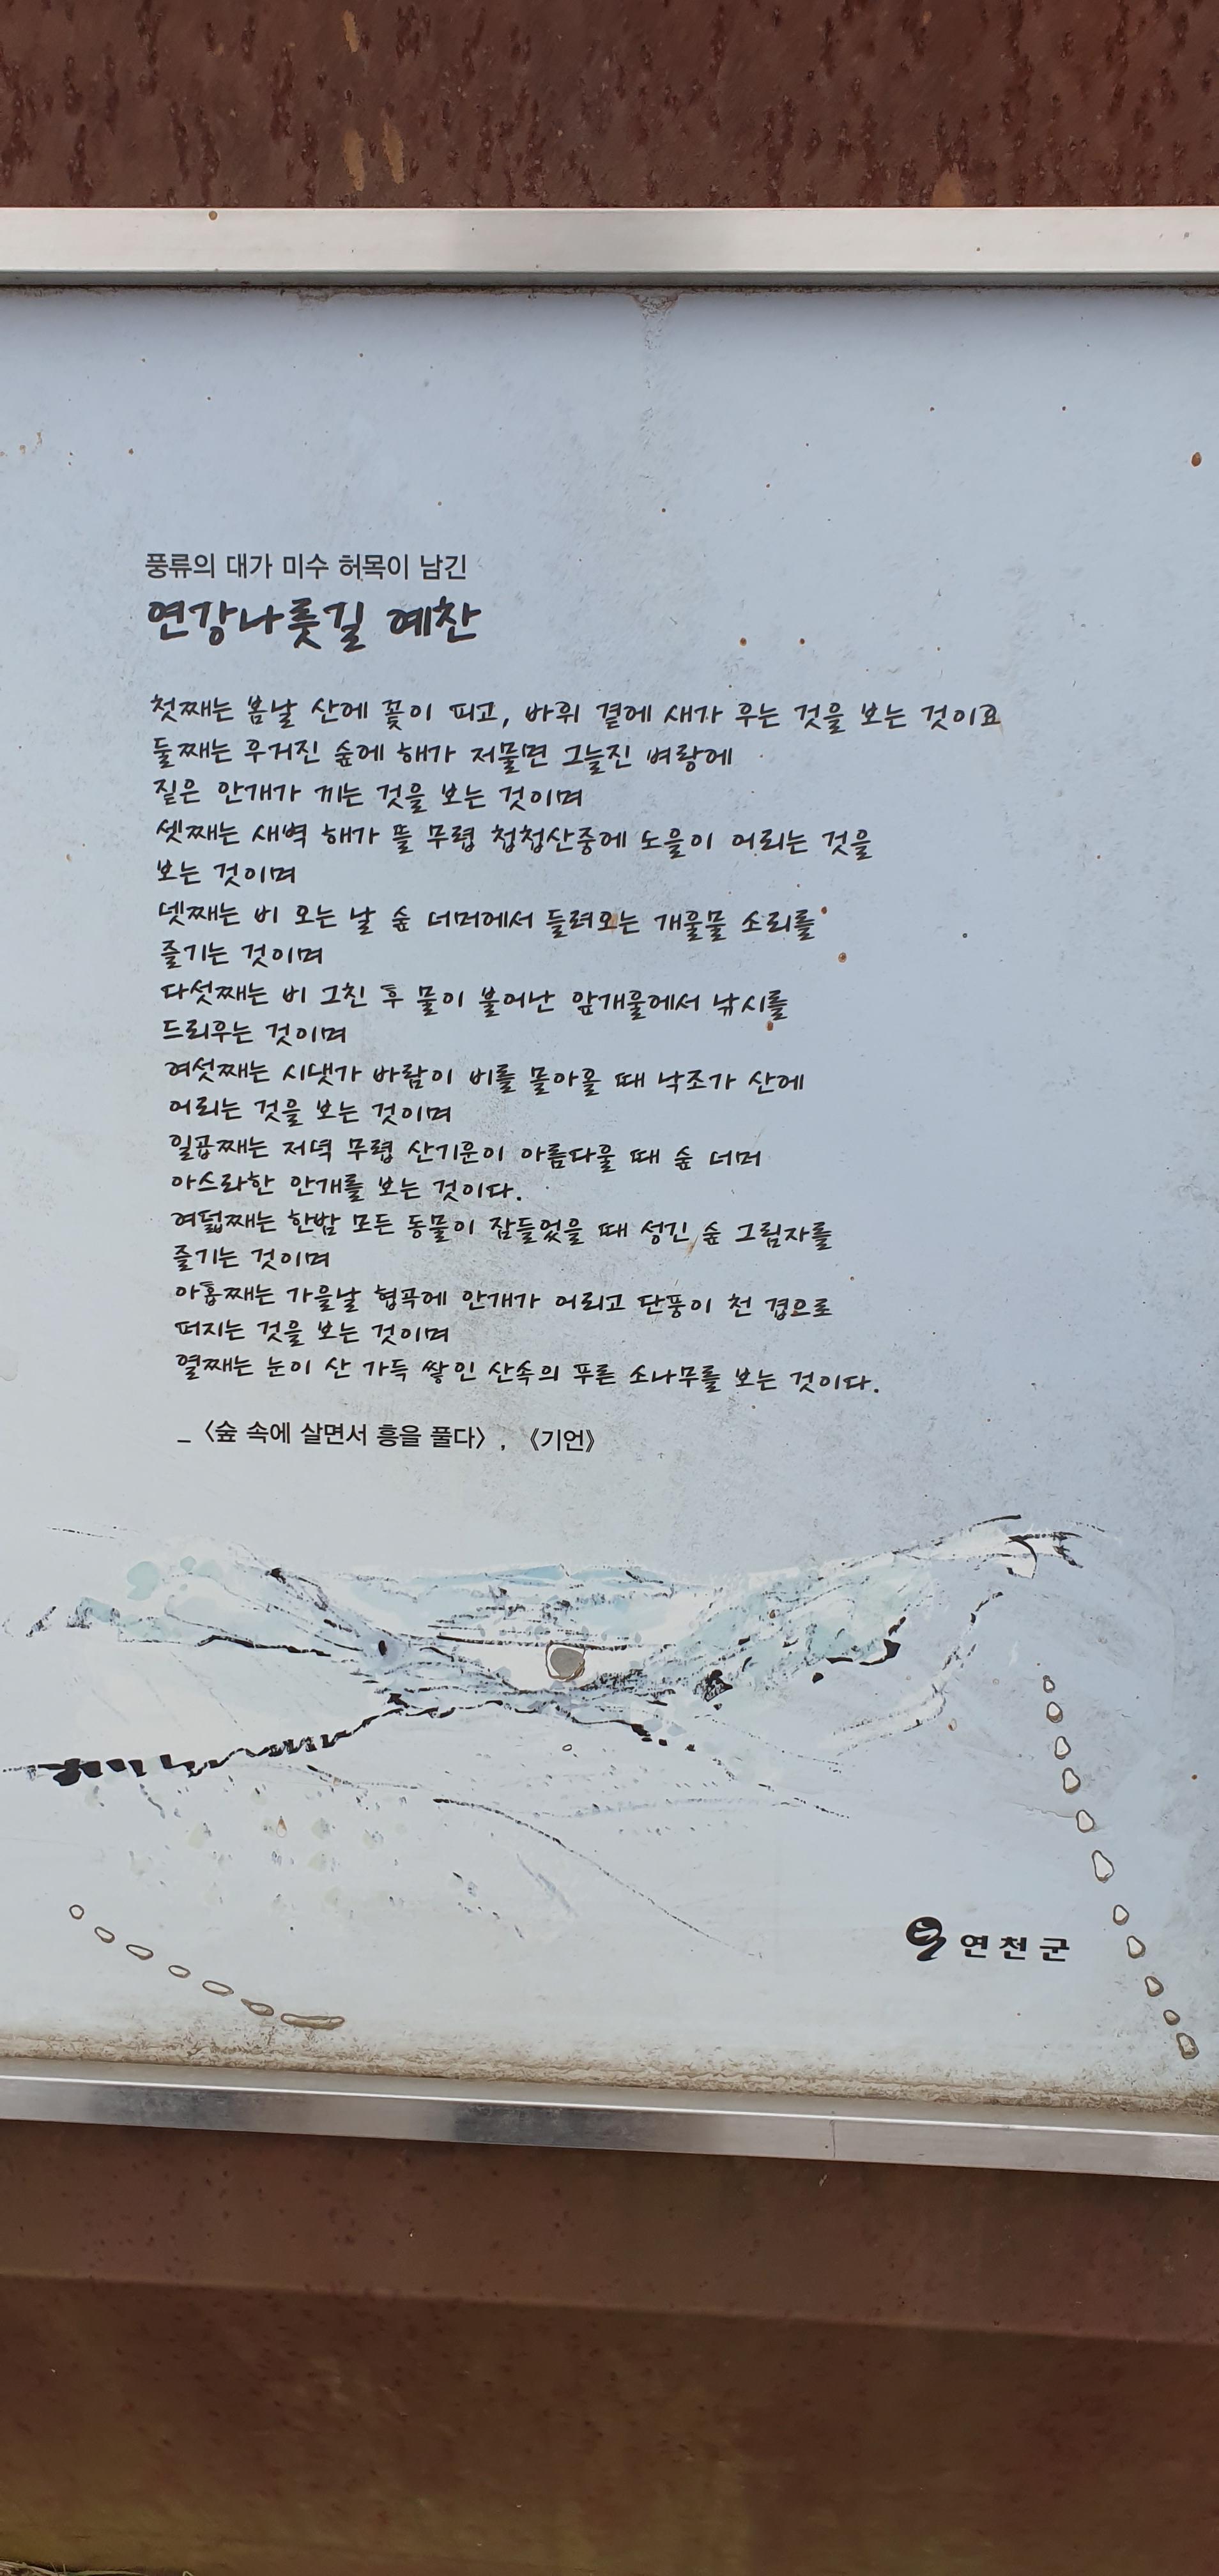 풍류의 대가 미수 허목이 남긴
연강나룻길 예찬
첫째는 봄날 산에 꽃이 피고, 바위 곁에 새가 우는 것을 보는 것이요
둘째는 우거진 숲에 해가 저물면 그늘진 벼랑에
짙은 안개가 끼는 것을 보는 것이며
셋째는 새벽 해가 뜰 무렵 첩첩산중에 노을이 어리는 것을
보는 것이며
넷째는 비 오는 날 숲 너머에서 들려오는 개울물 소리를
즐기는 것이며
다섯째는 비 그친 후 물이 불어난 앞개울에서 낚시를
드리우는 것이며
여섯째는 시냇가 바람이 비를 몰아올 때 낙조가 산에
어리는 것을 보는 것이며
일곱째는 저녁 무렵 산기운이 아름다울 때 숲 너머
아스라한 안개를 보는 것이다.
여덟째는 한밤 모든 동물이 잠들었을 때 성긴 숲 그림자를
즐기는 것이며
아홉째는 가을날 협곡에 안개가 어리고 단풍이 천 겹으로
퍼지는 것을 보는 것이며
열째는 눈이 산 가득 쌓인 산속의 푸른 소나무를 보는 것이다.
_〈숲 속에 살면서 흥을 풀다〉, 《기언》
연천군